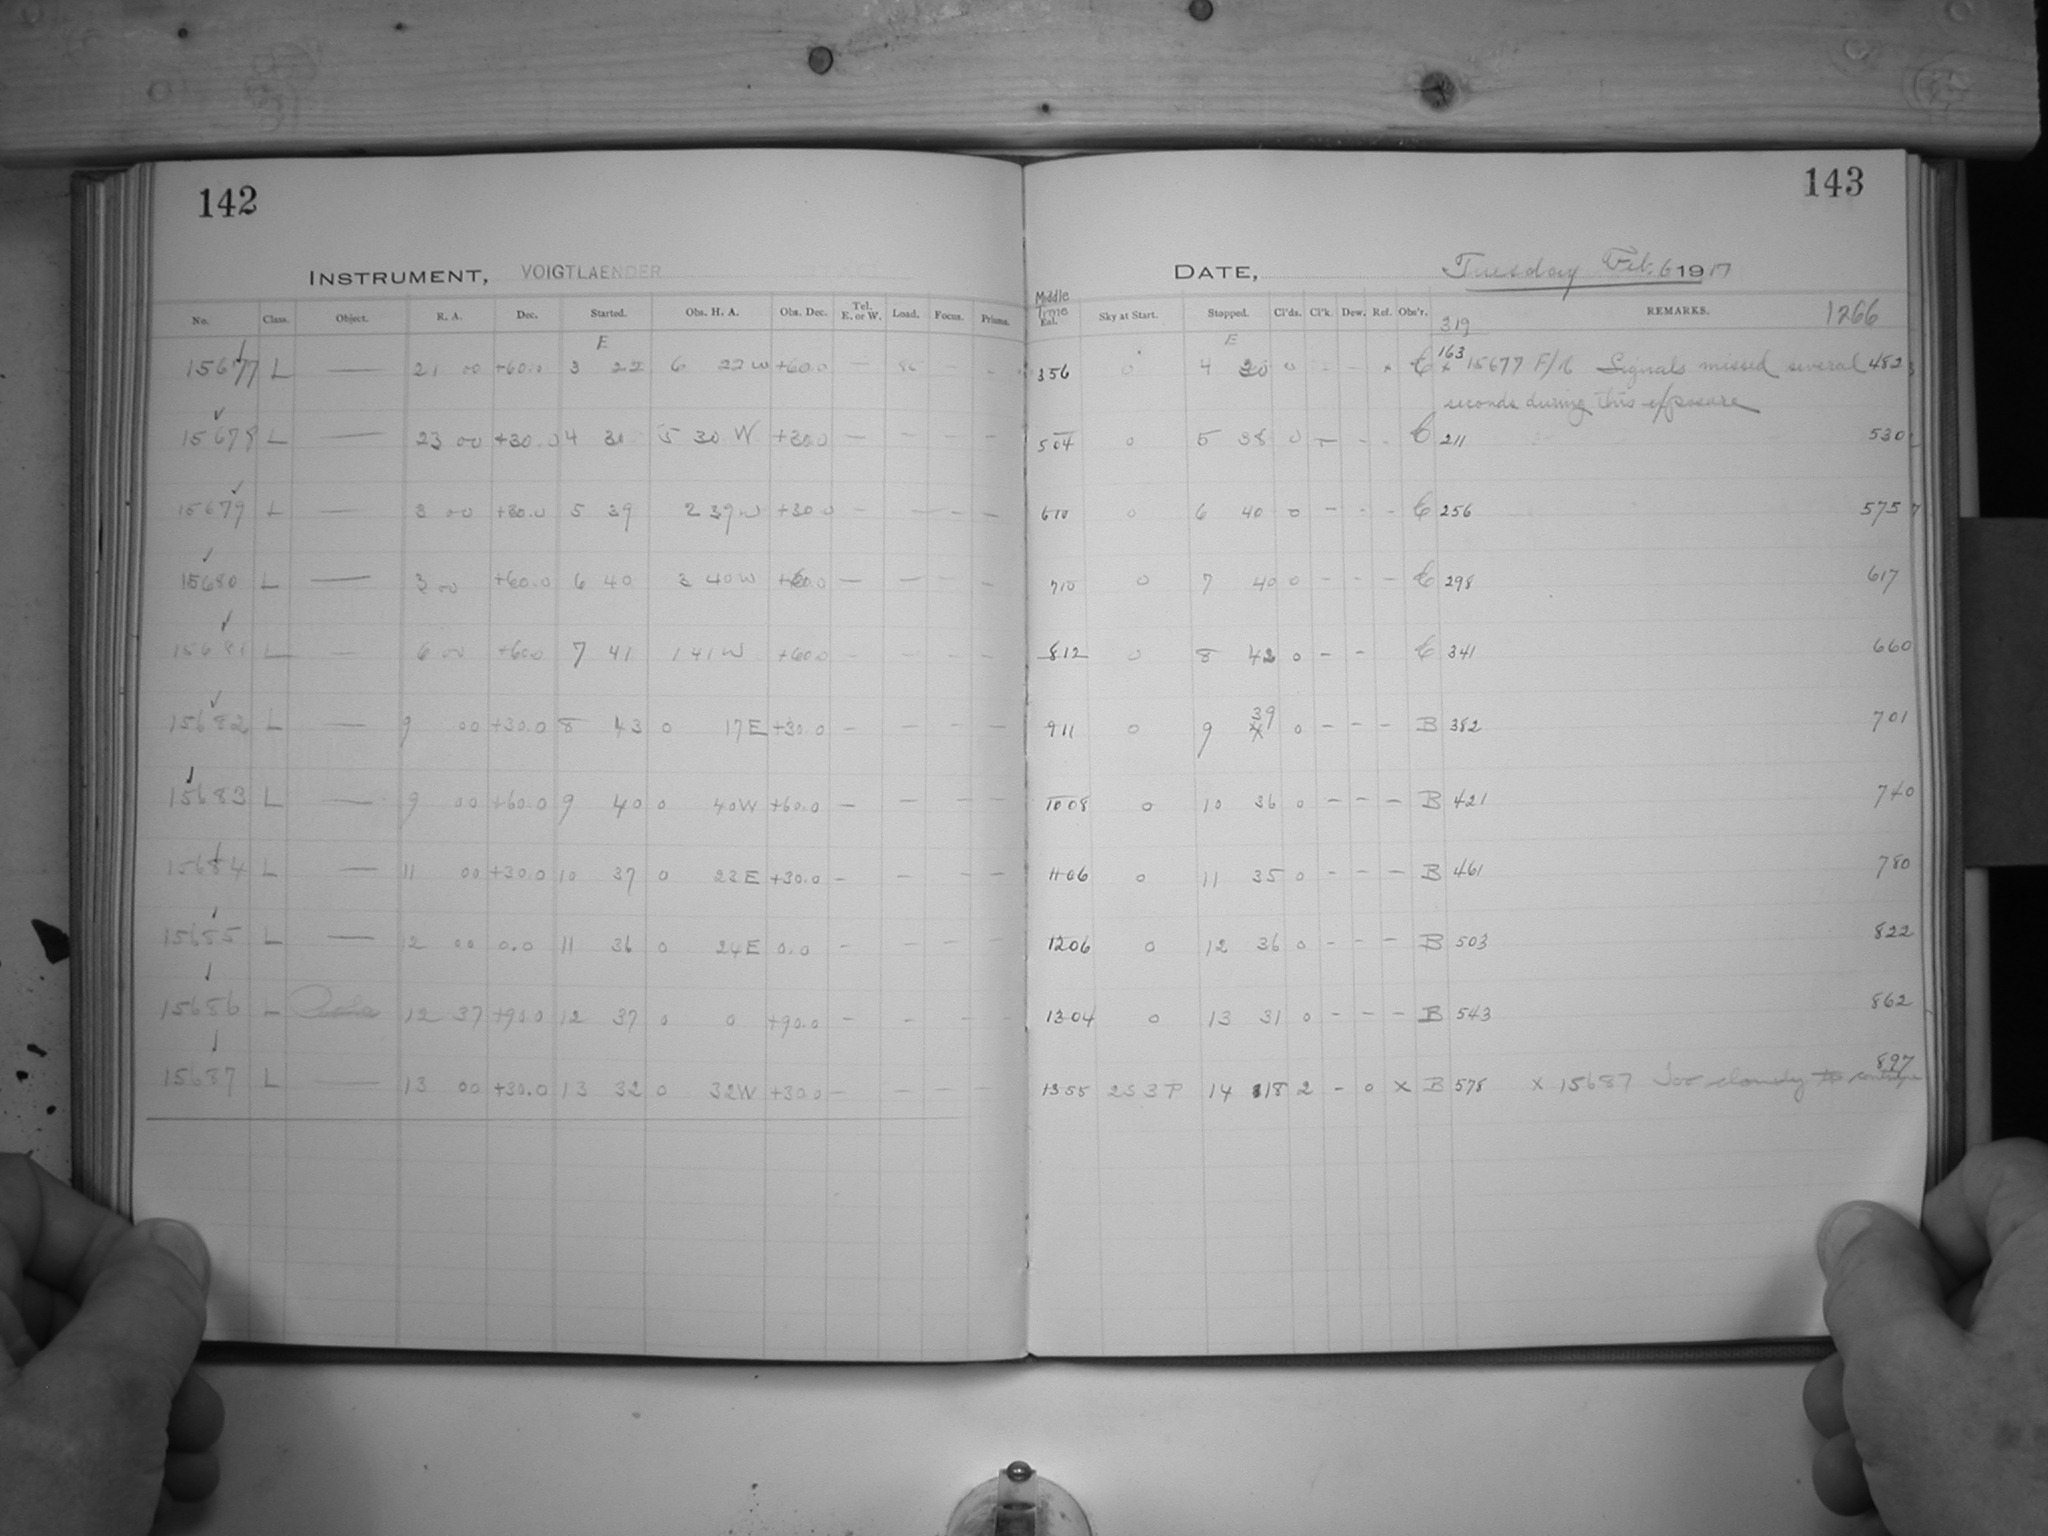 142
143
INSTRUMENT, VOIGTLAENDER
DATE, Tuesday Feb. 6 1917
No. Class. Object. R. A. Dec. Started. Obs. H. A. Obs. Dec. Tel. E. or W. Load. Focus. Prisms.
Middle Time Eal. Sky at Start. Stopped. Cl'ds. Cl'k. Dew. Ref. Obs'r. REMARKS. 1266
319
E
E
15677 L — 21 00 +60.0 3 22 6 22 W +60.0 — 86 — - 356 0 4 30 0 - - x C 163 x 15677 F/R Signals missed several 482
seconds during this exposure
15678 L — 23 00 +30.0 4 30 5 30 W +30.0 — — — — 504 0 5 38 0 - - - C 211 530
15679 L 3 00 +30.0 5 39 2 39 W +30.0 — — — — 610 0 6 40 0 - - - C 256 575
15680 L — 3 00 +60.0 6 40 3 40 W +60.0 — — — — 710 0 7 40 0 - - - C 298 617
15681 L — 6 00 +60.0 7 41 1 41 W +60.0 — — — — 812 0 8 42 0 - - C 341 660
15682 L — 9 00 +30.0 8 43 0 17 E +30.0 — — — — 911 0 9 39 0 - - - B 382 701
15683 L — 9 00 +60.0 9 40 0 40 W +60.0 — — — — 1008 0 10 36 0 - - - B 421 740
15684 L — 11 00 +30.0 10 37 0 23 E +30.0 — — — — 1106 0 11 35 0 - - - B 461 780
15685 L — 12 00 0.0 11 36 0 24 E 0.0 — — — — 1206 0 12 36 0 - - - B 503 822
15686 L Pole 12 37 +90.0 12 37 0 0 +90.0 — — — — 1304 0 13 31 0 - - - B 543 862
15687 L — 13 00 +30.0 13 32 0 32 W +30.0 — — — — 1355 2S3P 14 18 2 - 0 x B 578 x 15687 Too cloudy to continue 897